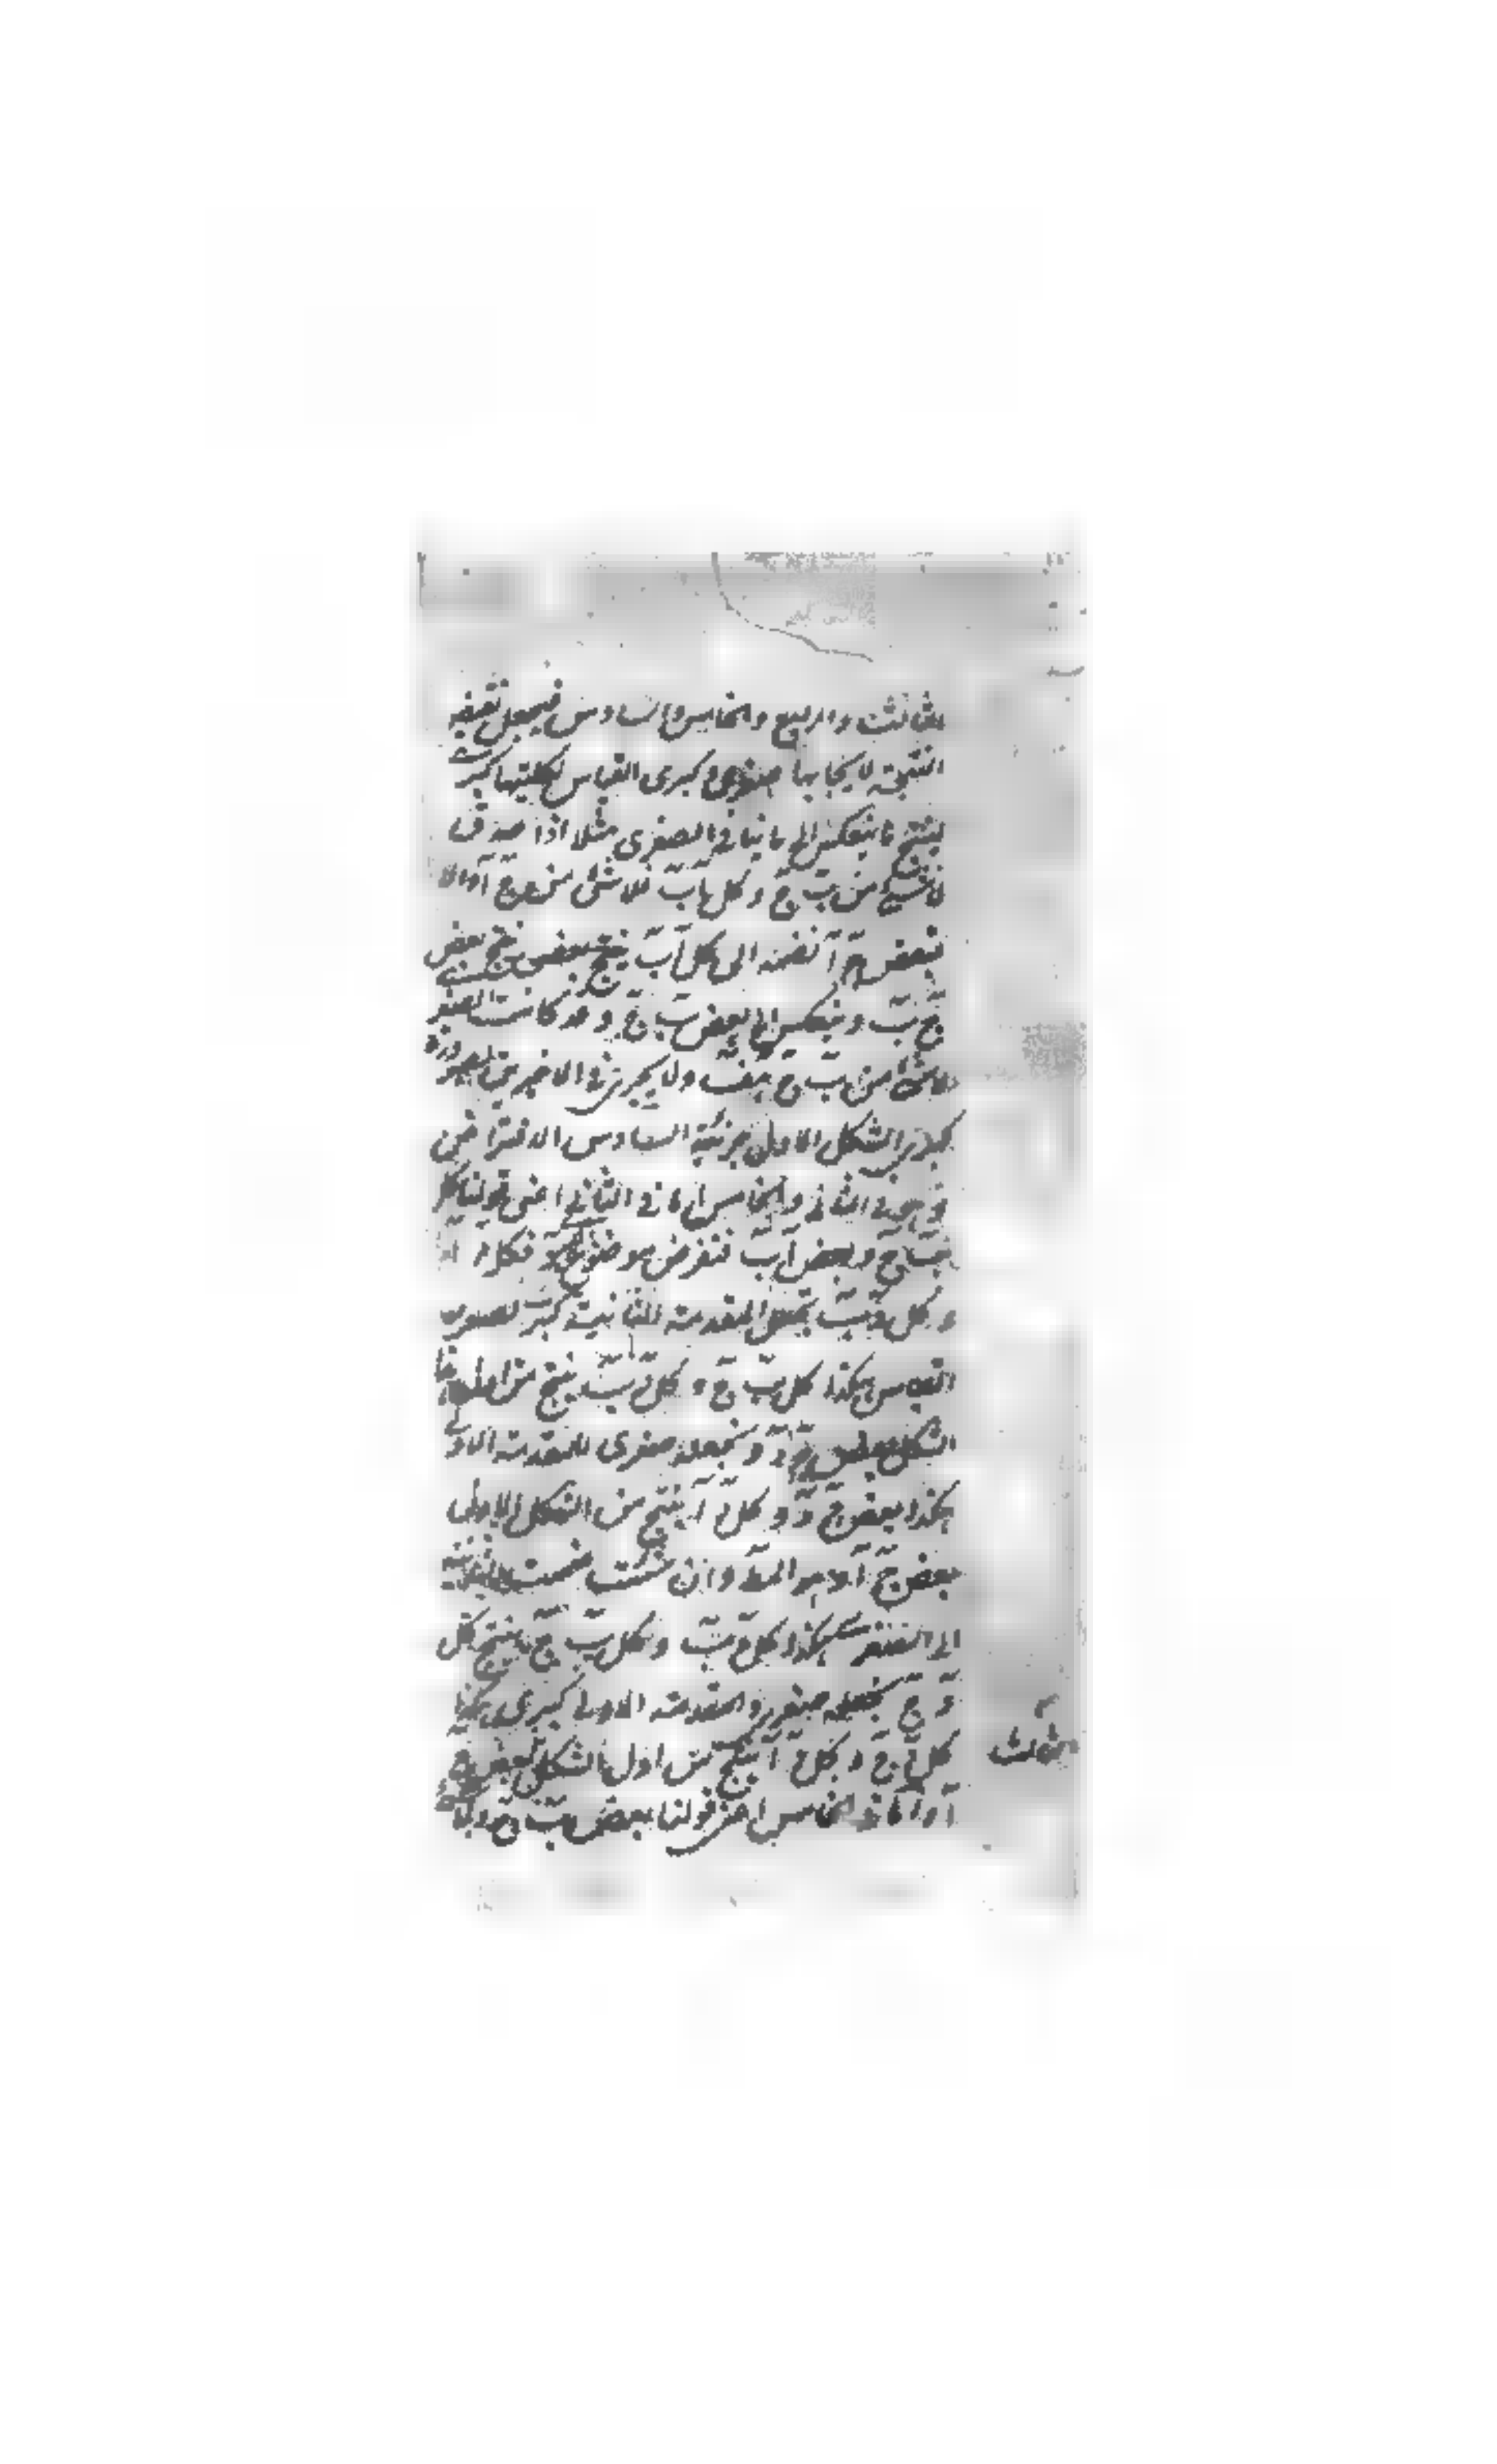 الثالث والرابع والخامس والسادس فيجعل نقيض
النتيجة لايجابها صغرى وكبرى القياس لكليتها كبرى
لينتج ما ينعكس الى ما ينافى الصغرى مثلا اذا صدق
لا شئ من ب ج وكل ا ب فلا شئ من ج ا والا
فبعض ج ا نضمه الى كل ا ب ينتج بعض
ج ب وينعكس الى بعض ب ج وقد كانت الصغرى
لا شئ من ب ج هف ولا يجرى فى الاخيرين لصيرورة
كبرى الشكل الاول جزئية السادس الافتراض
فى الثانى والخامس اما فى الثانى اعنى قولنا كل
ب ج وبعض ا ب فنفرض موضوع فكل د ا
وكل د ب نجعل المقدمة الثانية كبرى لصغرى
القياس هكذا كل ب ج وكل د ب ينتج من اول هذا
الشكل بعض ج د ونجعله صغرى للمقدمة الاولى
هكذا بعض ج د وكل د ا ينتج من الشكل الاول
بعض ج ا وهو المط وان شئت ضممت الثانية
الى الصغرى هكذا كل د ب وكل ب ج ينتج كل
د ج نجعله صغرى والمقدمة الاولى كبرى هكذا
كل د ج وكل د ا ينتج من اول الثالث الشكل بعض ج
ا واما فى الخامس اعنى قولنا بعض ب ج